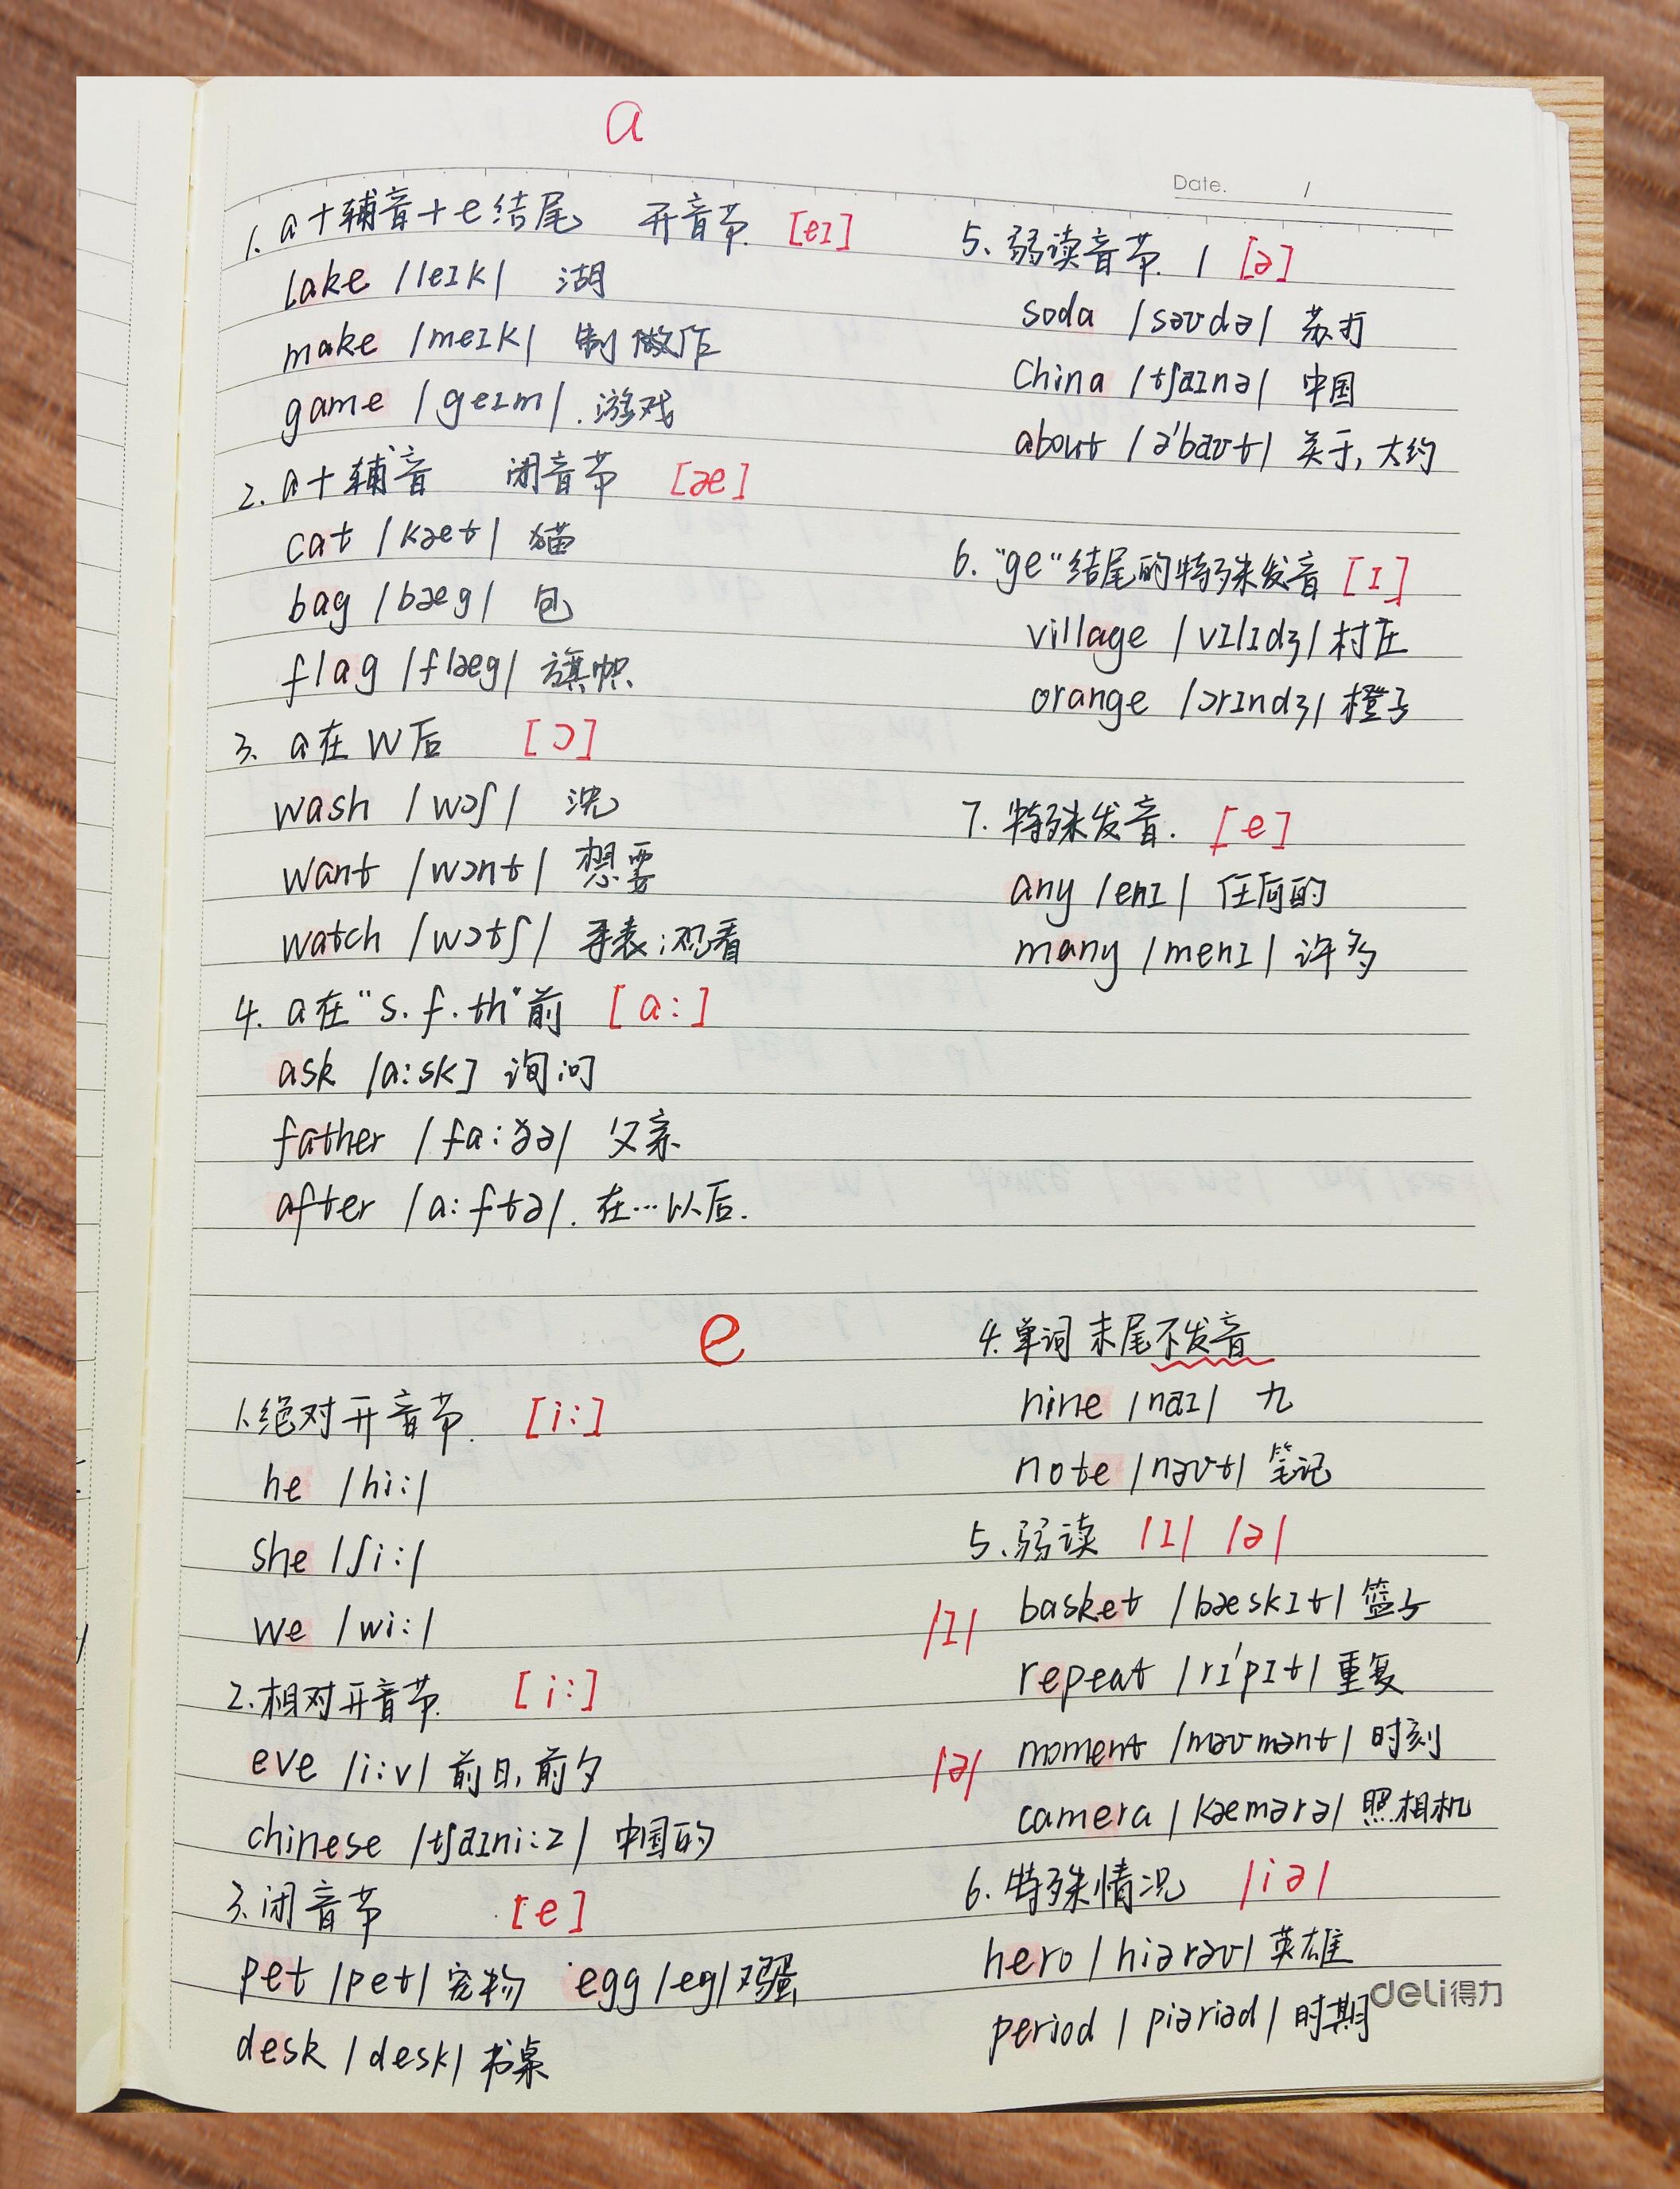 a
Date. /
1. a+辅音+e结尾 开音节 [eɪ]
lake /leɪk/ 湖
make /meɪk/ 制做作
game /geɪm/. 游戏
2. a+辅音 闭音节 [æ]
cat /kæt/ 猫
bag /bæg/ 包
flag /flæg/ 旗帜
3. a在w后 [ɔ]
wash /wɔʃ/ 洗
want /wɔnt/ 想要
watch /wɔtʃ/ 手表;观看
4. a在"s.f.th"前 [a:]
ask /a:sk] 询问
father /fa:ðə/ 父亲
after /a:ftə/. 在…以后.
5、弱读音节 / [ə]
soda /səʊdə/ 苏打
China /tʃaɪnə/ 中国
about /ə'baʊt/ 关于,大约
6. "ge"结尾的特殊发音 [ɪ]
village /vɪlɪdʒ/ 村庄
orange /ɔrɪndʒ/ 橙子
7. 特殊发音. [e]
any /enɪ/ 任何的
many /menɪ/ 许多
e
1.绝对开音节 [i:]
he /hi:/
she /ʃi:/
we /wi:/
2.相对开音节 [i:]
eve /i:v/ 前日,前夕
chinese /tʃaɪni:z/ 中国的
3.闭音节 [e]
pet /pet/ 宠物 egg /eg/ 鸡蛋
desk /desk/ 书桌
4.单词末尾不发音
nine /naɪ/ 九
note /nəʊt/ 笔记
5.弱读 /ɪ/ /ə/
/ɪ/ basket /bæskɪt/ 篮子
repeat /rɪ'pɪt/ 重复
/ə/ moment /məʊmənt/ 时刻
camera /kæmərə/ 照相机
6. 特殊情况 /iə/
hero /hiərəʊ/ 英雄
period /piəriəd/ 时期
deli得力